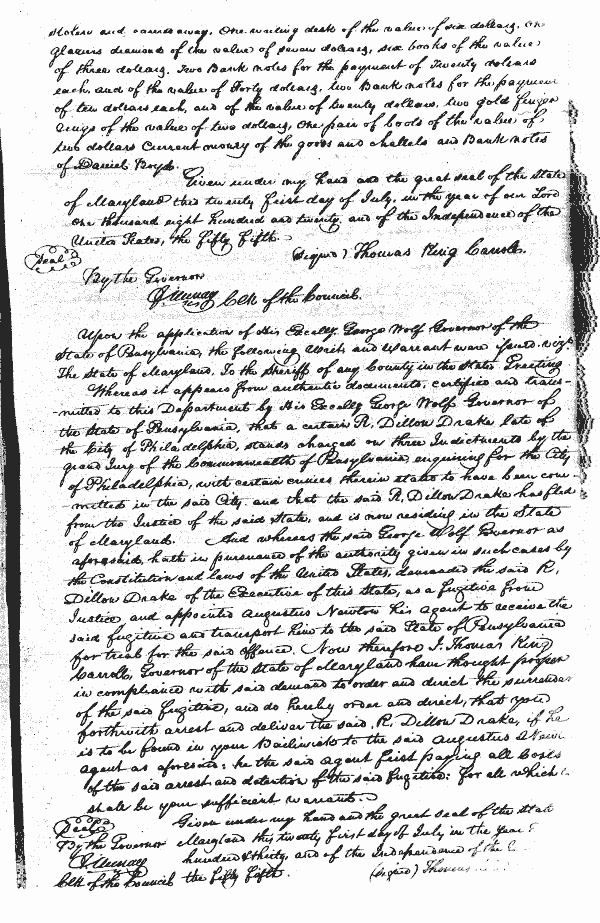 stolen and carried away, One writing desk of the value of six dollars, One
glaziers diamond of the value of seven dollars, six books of the value
of three dollars, Two Bank notes for the payment of Twenty dollars
each, and of the value of Forty dollars, two Bank notes for the payment
of ten dollars each, and of the value of twenty dollars, two gold finger
rings of the value of two dollars, One pair of boots of the value of
two dollars Current money of the goods and chattels and Bank notes
of Daniel Boyd.
Given under my hand and the great seal of the State
of Maryland this twenty first day of July, in the year of our Lord
One thousand eight hundred and twenty, and of the Independence of the
United States, the fifty fifth.
(Seal) (signed) Thomas King Carroll.
By the Governor
Clk of the Council.
Upon the application of His Excelly George Wolf Governor of the
State of Pensylvania, the following Writ and Warrant were issued viz:
The State of Maryland, To the Sheriff of any County in the State, Greeting
Whereas it appears from authentic documents, certified and trans-
-mitted to this Department by His Excelly George Wolf Governor of
the State of Pensylvania, that a certain R. Dillow Drake late of
the City of Philadelphia, stands charged on three Indictments by the
grand Jury of the Commonwealth of Pensylvania enquiring for the City
of Philadelphia, with certain crimes therein stated to have been com
mitted in the said City. and that the said R. Dillow Drake has fled
from the Justice of the said State, and is now residing in the State
of Maryland. And whereas the said George Wolf Governor as
aforesaid, hath in pursuance of the authority given in such cases by
the Constitution and laws of the United States, demanded the said R.
Dillow Drake of the Executive of this State, as a fugitive from
Justice, and appointed Augustus Newton his agent to receive the
said fugitive and transport him to the said State of Pensylvania
for trial for the said offence. Now therefore I, Thomas King
Carroll, Governor of the State of Maryland have thought proper
in compliance with said demand to order and direct the surrender
of the said fugitive, and do hereby order and direct, that you
forthwith arrest and deliver the said R. Dillow Drake, if he
is to be found in your Bailiwick to the said Augustus Newton
agent as aforesaid: he the said agent first paying all Costs
of the said arrest and detention of the said fugitive: for all which
shall be your sufficient warrant.
(Seal) Given under my hand and the great seal of the State
By the Governor Maryland this twenty first day of July in the year
hundred & thirty, and of the Independence of the
Clk of the Council the fifty fifth. (signed) Thomas